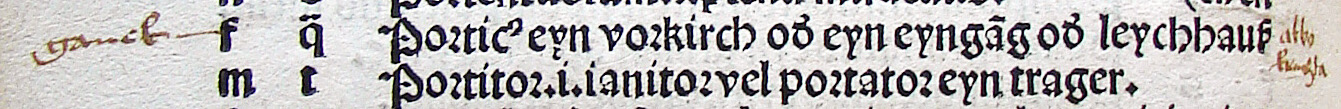 ganck f q̃ Porticꝰ eyn vorkirch od̕ eyn eyngãg od̕ leychhauß
m t Portitor.i.ianitor vel portator eyn trager.